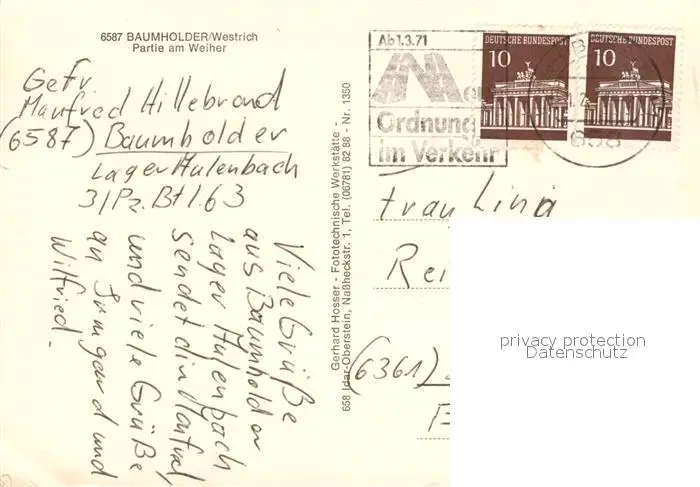 6587 BAUMHOLDER/Westrich
Partie am Weiher
Gefr.
Manfred Hillebrand
(6587) Baumholder
Lager Aulenbach
3/Pz.Btl.63
Viele Grüße
aus Baumholder
Lager Aulenbach
sendet dir Manfred
und viele Grüße
an Irmgard und
Wilfried.
Gerhard Hosser - Fototechnische Werkstätte -
658 Idar-Oberstein, Naßheckstr. 1, Tel. (06781) 82 88 - Nr. 1350
Ab 1.3.71
Neue
Ordnung
im Verkehr
DEUTSCHE BUNDESPOST
10
DEUTSCHE BUNDESPOST
10
658
Frau Lina
Rei
(6361)
privacy protection
Datenschutz